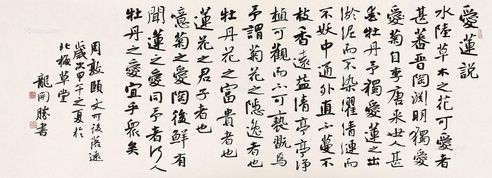 愛蓮説
水陸草木之花可愛者
甚蕃晉陶淵明獨
愛菊自李唐来世人甚
愛牡丹予獨愛蓮之出
淤泥而不染濯清漣而
不妖中通外直不蔓不
枝香遠益清亭亭淨
植可觀而不可褻翫焉
予謂菊花之隱逸者也
牡丹花之富貴者也
蓮花之君子者也
噫菊之愛陶後鮮有
聞蓮之愛同予者何人
牡丹之愛宜乎眾矣
周敦頤文
歲甲午之夏於
北極草堂
龍開勝書